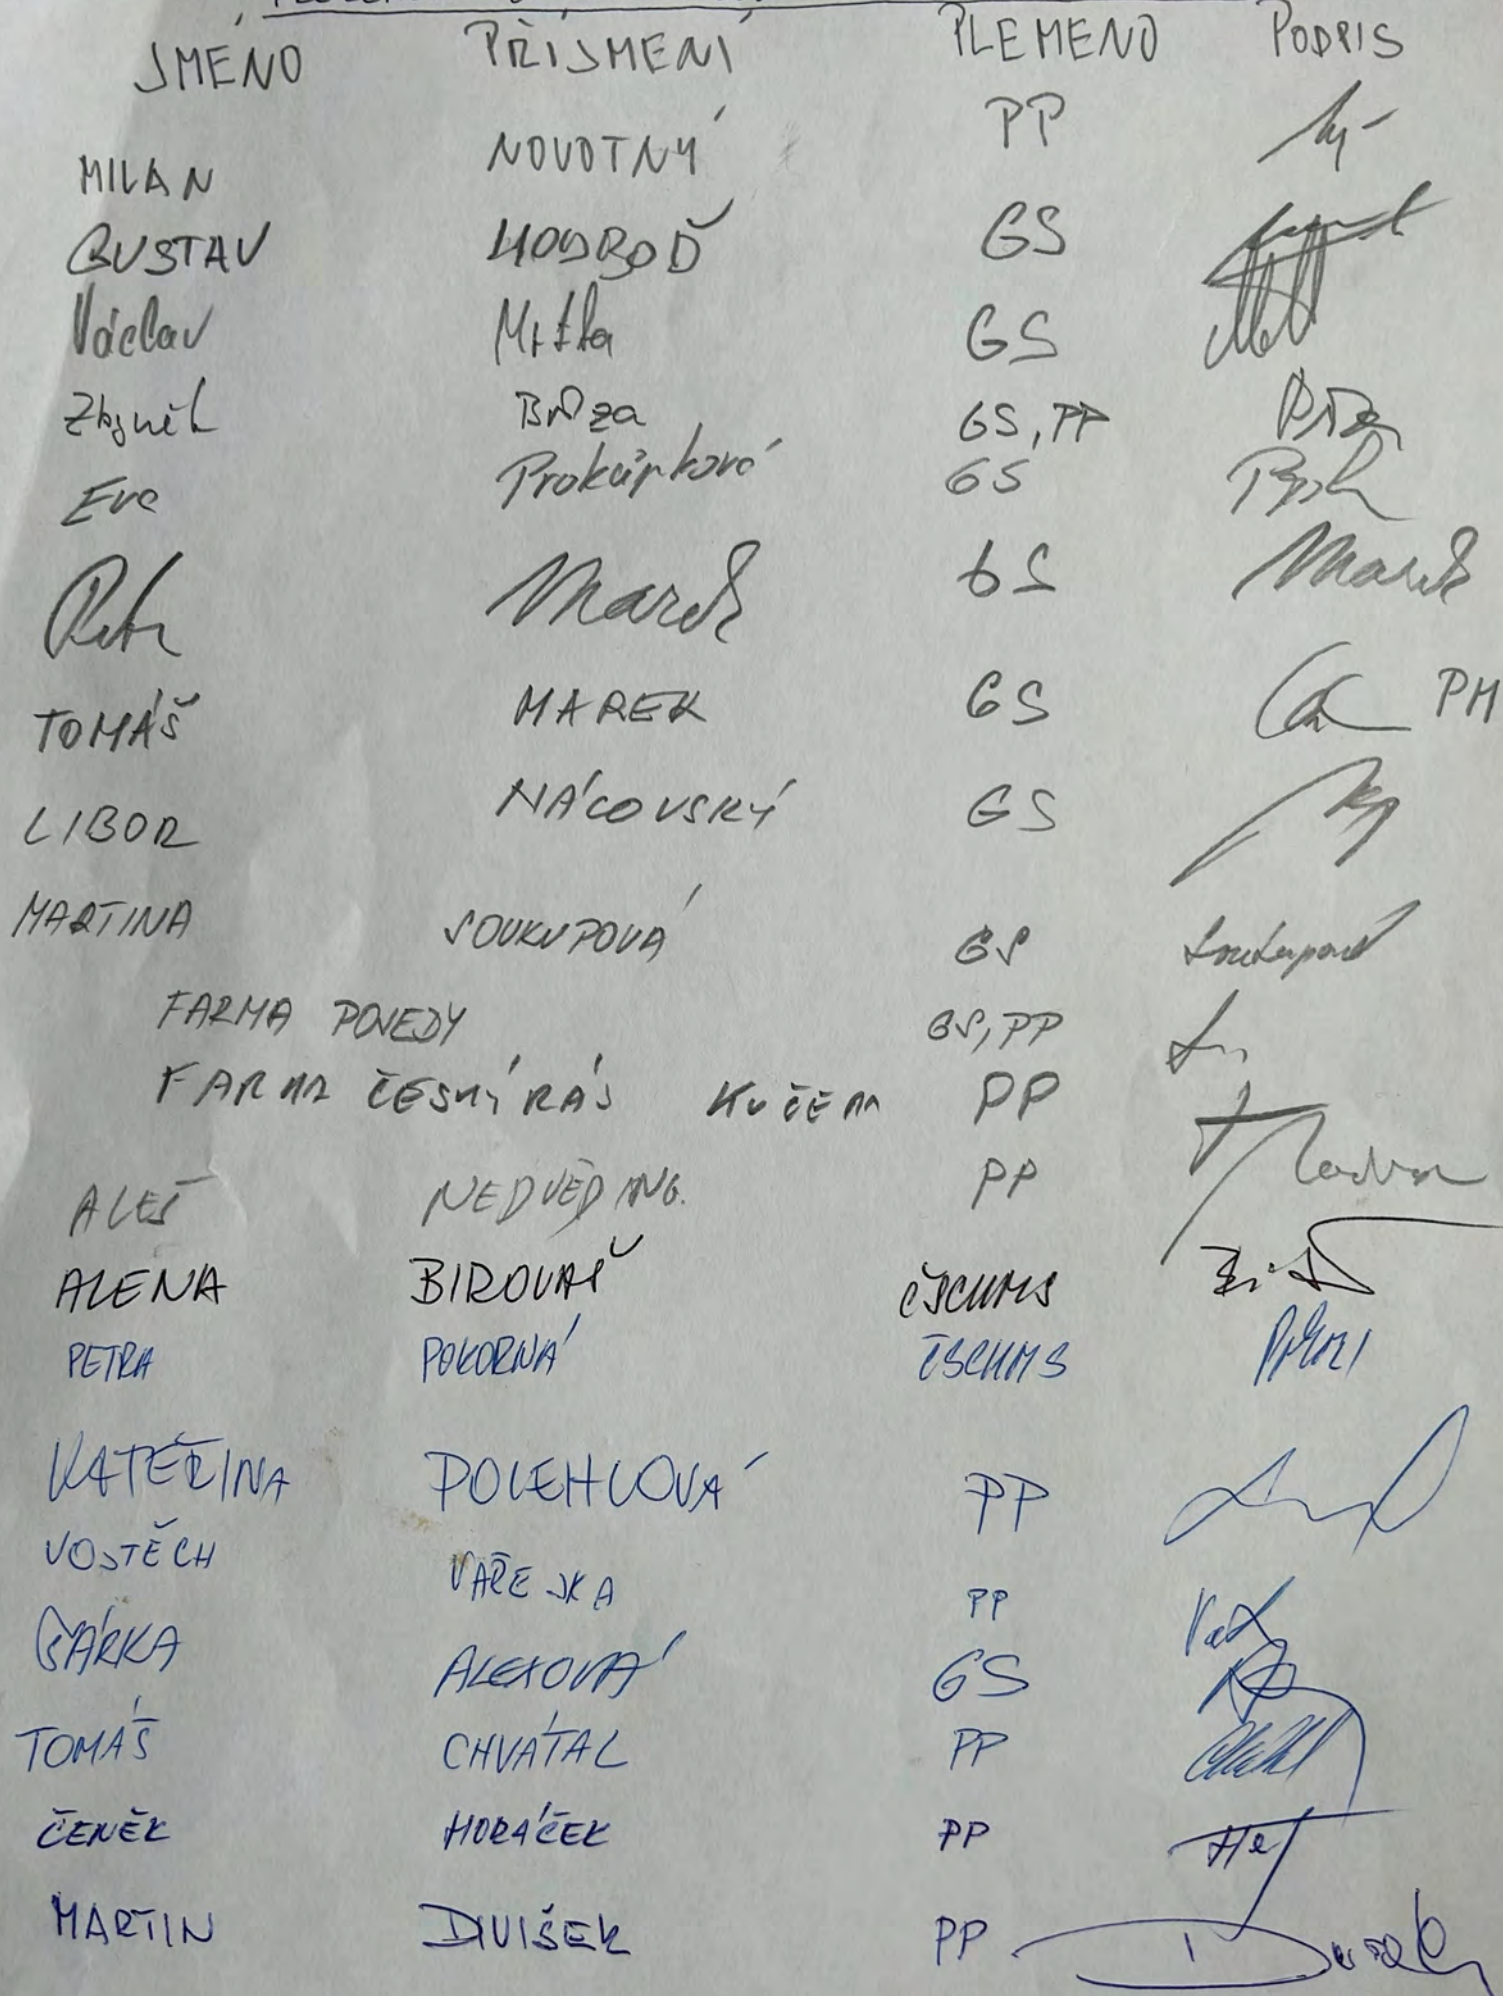 JMÉNO PŘÍJMENÍ PLEMENO PODPIS
MILAN NOVOTNÝ PP
GUSTAV HOUBOĎ GS
Václav Mrtka GS
Zbyněk Bůza GS, PP
Eva Prokůpková GS
Petr Marek GS Marek
TOMÁŠ MAREK GS PM
LIBOR NÁCOVSKÝ GS
MARTINA SOUKUPOVÁ GS Soukupová
FARMA POJEDY GS, PP
FARMA ČESKÝ RÁJ KUČERA PP
ALEŠ NEDVĚD ING. PP
ALENA BIROVAŠ ČSCHMS
PETRA POKORNÁ ČSCHMS
KATEŘINA DOLEHLOVÁ PP
VOJTĚCH VAŘEJKA PP
ŠÁRKA ALEXOVÁ GS
TOMÁŠ CHVÁTAL PP
ČENĚK HORÁČEK PP
MARTIN DIVIŠEK PP